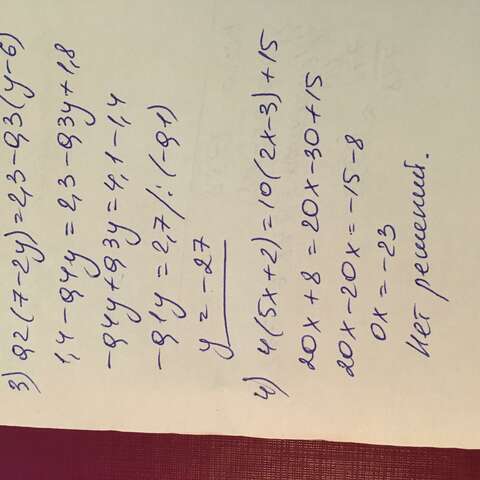 3) 0,2(7-2y)=2,3-0,3(y-6)
1,4-0,4y=2,3-0,3y+1,8
-0,4y+0,3y=4,1-1,4
-0,1y=2,7/:(-0,1)
y=-27
4) 4(5x+2)=10(2x-3)+15
20x+8=20x-30+15
20x-20x=-15-8
0x=-23
Нет решений.